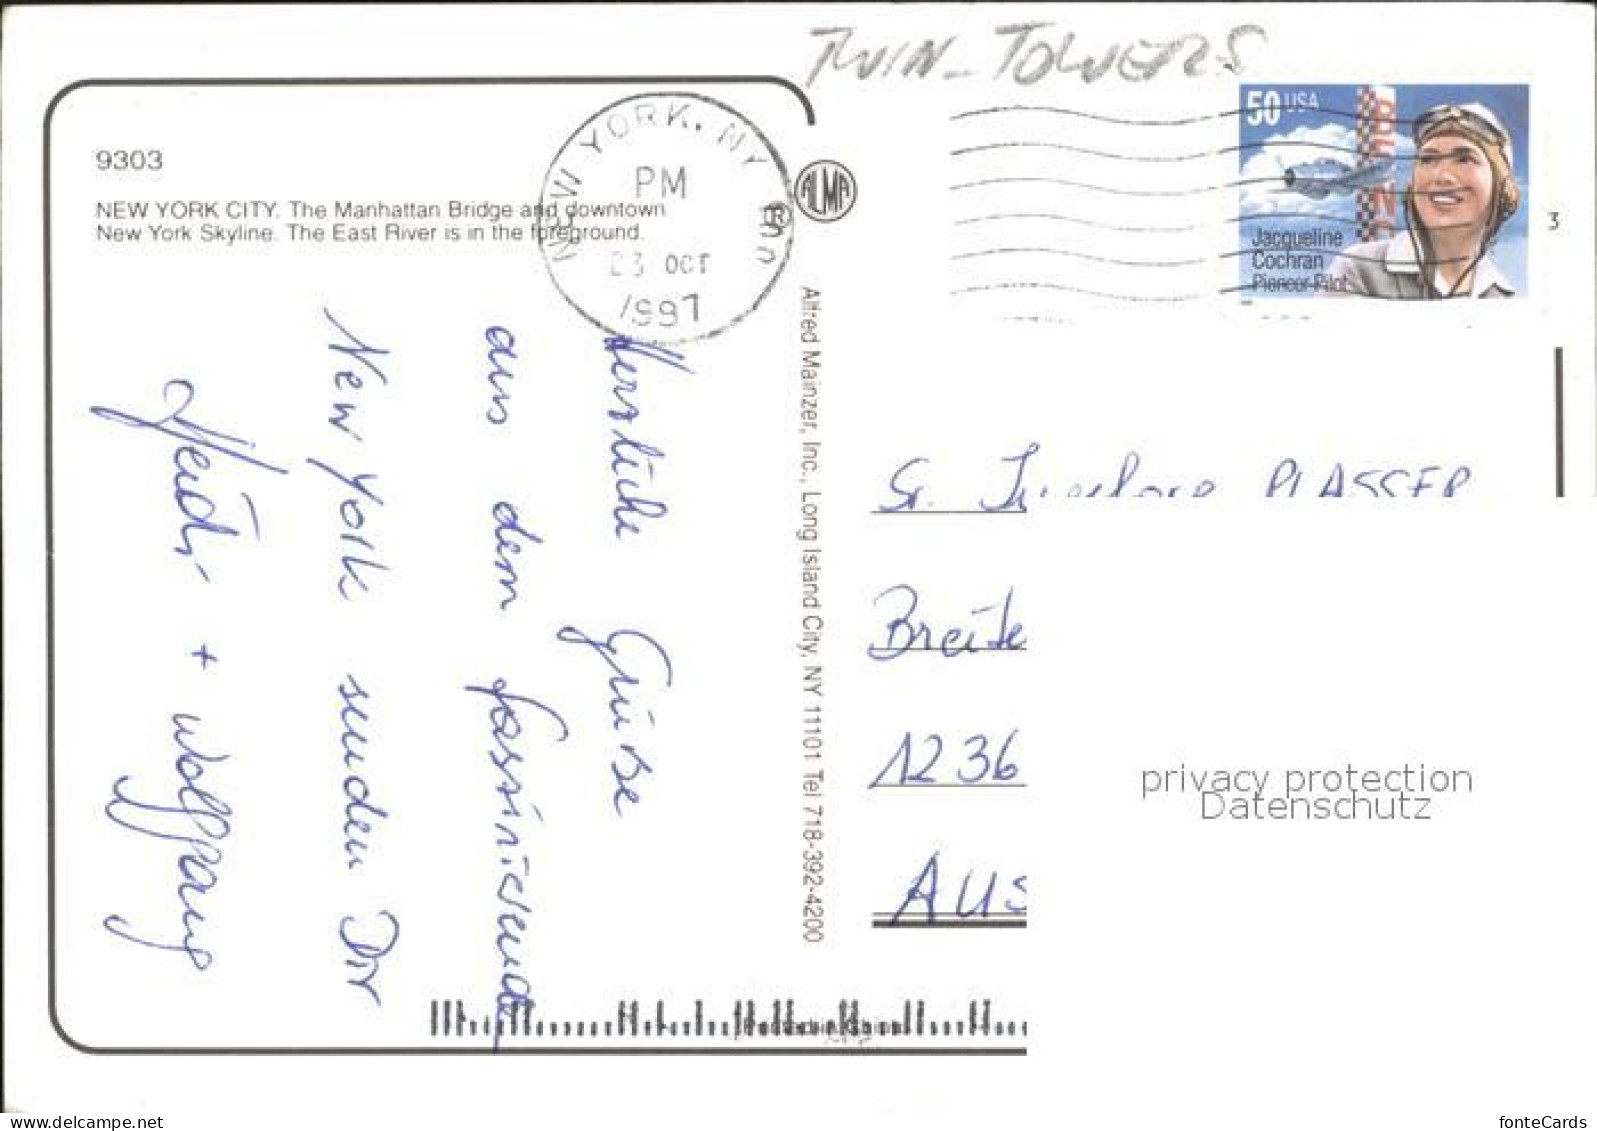 TWIN-TOWERS
9303
NEW YORK CITY. The Manhattan Bridge and downtown
New York Skyline. The East River is in the foreground.
NEW YORK, NY
PM
23 OCT
1997
ALMA
®
50 USA
Jacqueline
Cochran
Pioneer Pilot
3
Alfred Mainzer, Inc., Long Island City, NY 11101 Tel 718-392-4200
Herzliche Grüsse
aus dem faszinierenden
New York senden Dir
Heidi + Wolfgang
PLASSER
Breite
1236
AUS
privacy protection
Datenschutz
fonteCards